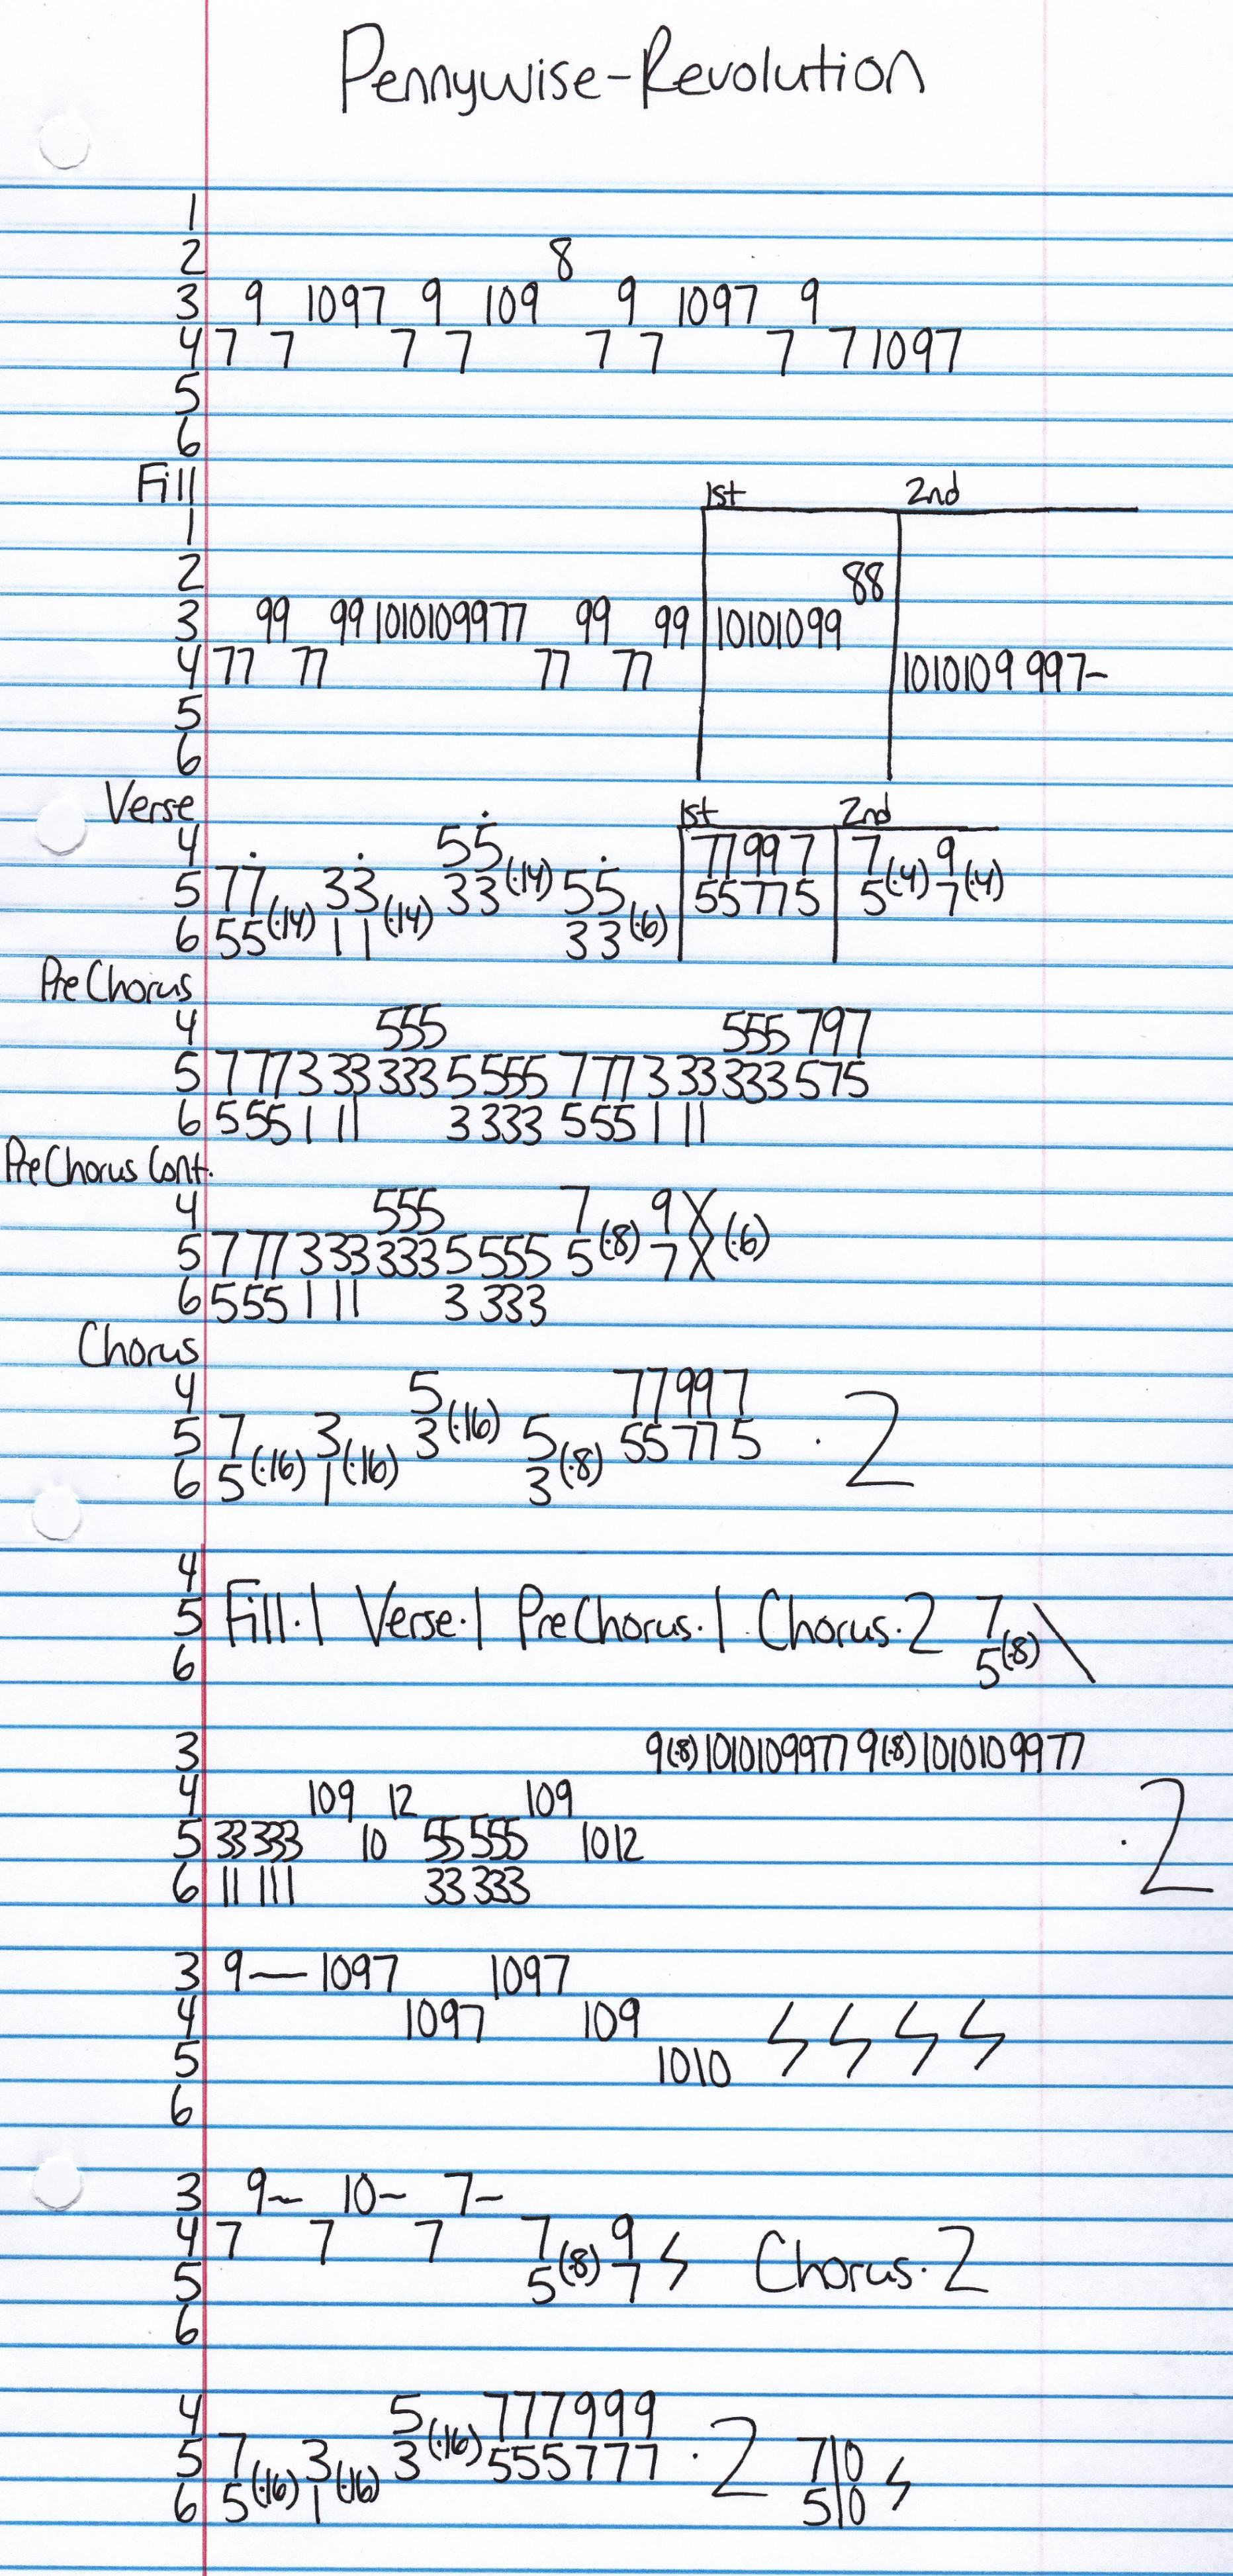 Pennywise-Revolution
1
2 8
3 9 1097 9 109 9 1097 9
4 7 7 7 7 7 7 7 7 1097
5
6
Fill 1st 2nd
1
2 88
3 99 99 1010109977 99 99 10101099
4 77 77 77 77 1010109 997-
5
6
Verse 1st 2nd
4 55 77997 7 9
5 77 33 33(·14) 55 55775 5(·4) 7(·4)
6 55(·14) 11(·14) 33(·6)
PreChorus
4 555 555 797
5 777 3 33 333 5 555 777 3 33 333 575
6 555 1 11 3 333 555 1 11
PreChorus Cont.
4 555 7 9 X
5 777 333 333 5 555 5(·8) 7 X (·6)
6 555 1 11 3 333
Chorus
4 5 77997
5 7 3 3(·16) 5 55775 ·2
6 5(·16) 1(·16) 3(·8)
4
5 Fill·1 Verse·1 PreChorus·1 Chorus·2 7
6 5(·8) \
3 9(·8)1010109977 9(·8)1010109977
4 109 12 109 ·2
5 33 333 10 55 555 1012
6 11 111 33 333
3 9— 1097 1097
4 1097 109
5 1010
6
3 9~ 10~ 7-
4 7 7 7 7 9
5 5(·8) 7 Chorus·2
6
4 5 777999
5 7 3 3(·16) 555777 ·2 7|0
6 5(·16) 1(·16) 5|0